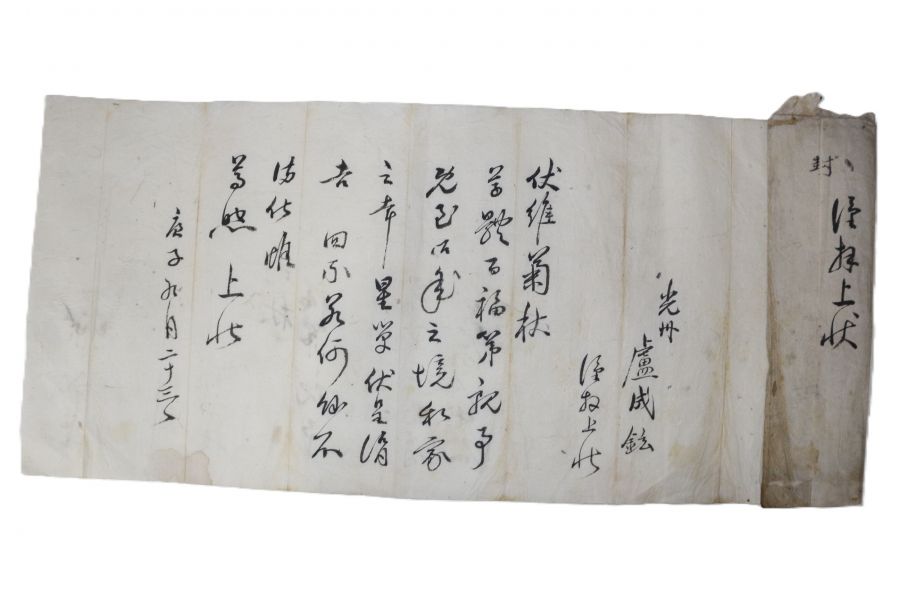 謹拜上狀
封
光州
盧成鉉
謹拜上狀
伏維菊秋
尊體百福第親事
旣至之境私家
之幸星單伏呈涓
吉 回示若何餘不
備伏惟
尊照 上狀
庚子九月二十三日